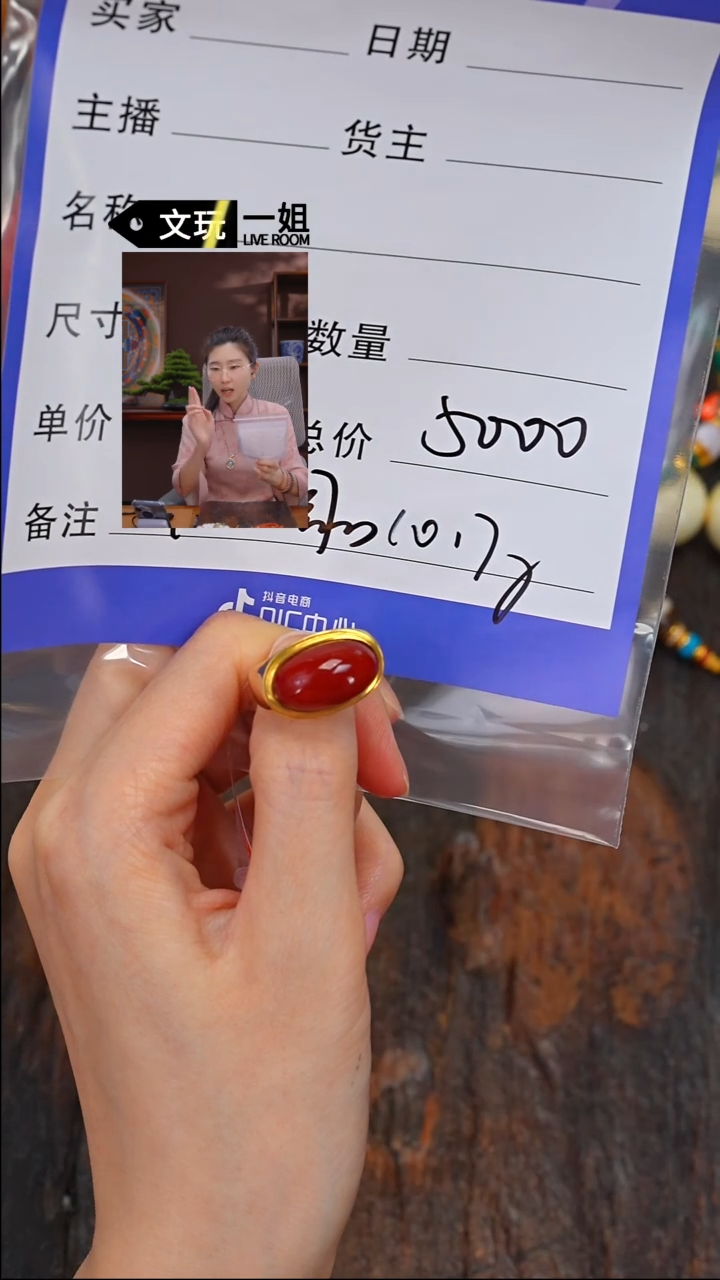 买家 日期
主播 货主
名称
文玩 一姐
LIVE ROOM
尺寸 数量
单价 总价 5000
备注 10.17g
抖音电商
QIC中心